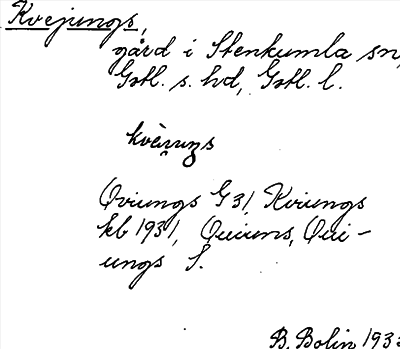 Kvejungs,
gård i Stenkumla sn,
Gotl. s. hd, Gotl. l.
Qviungs G31 Kviungs
kb 1931, Quiuns, Qui-
ungs S.
B. Bolin 193